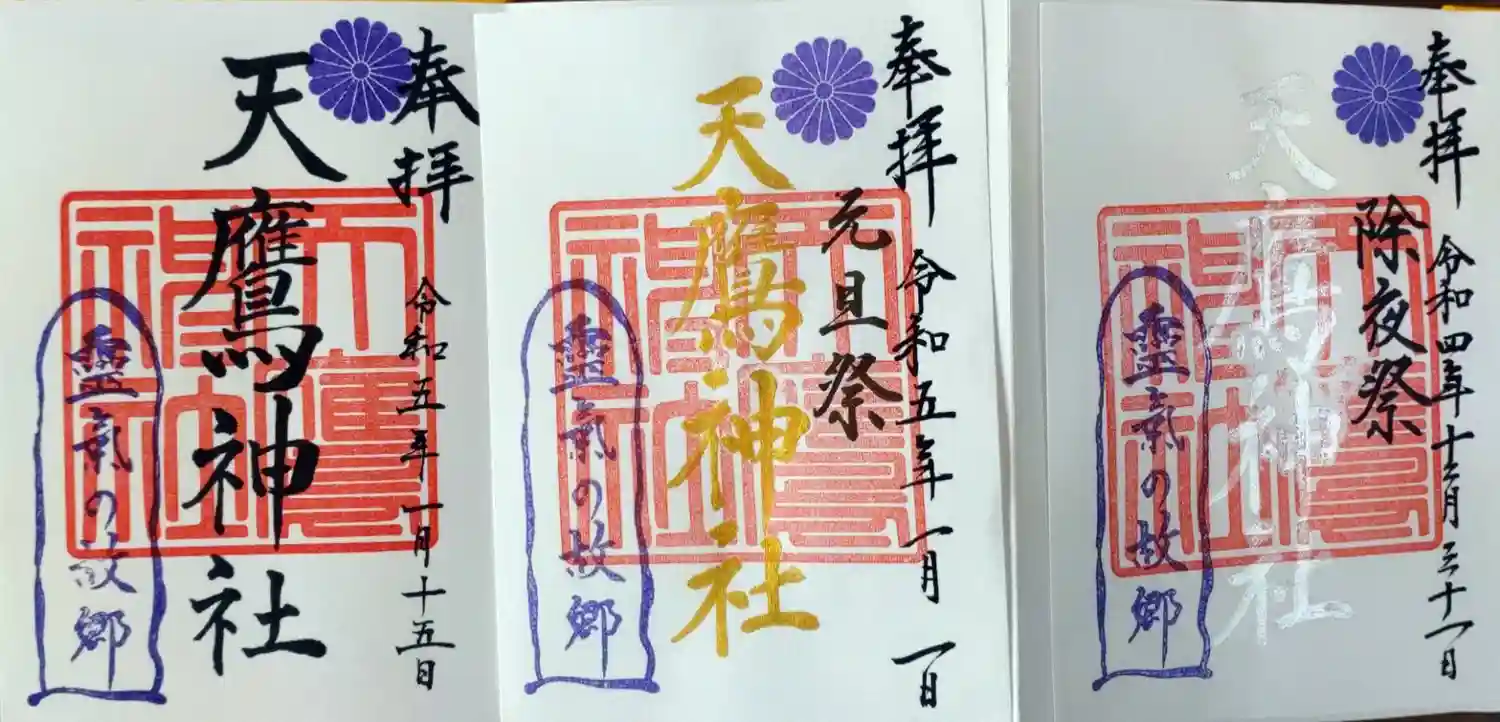 奉拝
令和五年一月十五日
天鷹神社
天鷹
神社
靈氣の故郷
奉拝
令和五年一月一日
元旦祭
天鷹神社
天鷹
神社
靈氣の故郷
奉拝
令和四年十二月三十一日
除夜祭
天鷹神社
天鷹
神社
靈氣の故郷